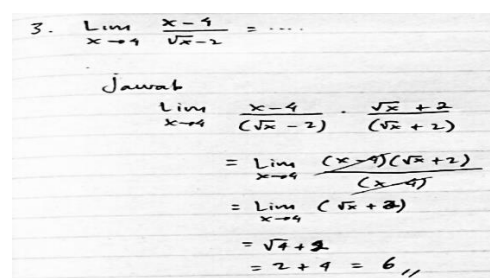 3. Lim x→4 (x-4)/(√x-2) = ....
Jawab
Lim x→4 (x-4)/((√x-2)) · (√x+2)/((√x+2))
= Lim x→4 ((x-4)(√x+2))/((x-4))
= Lim x→4 (√x+2)
= √4+2
= 2+4 = 6,,